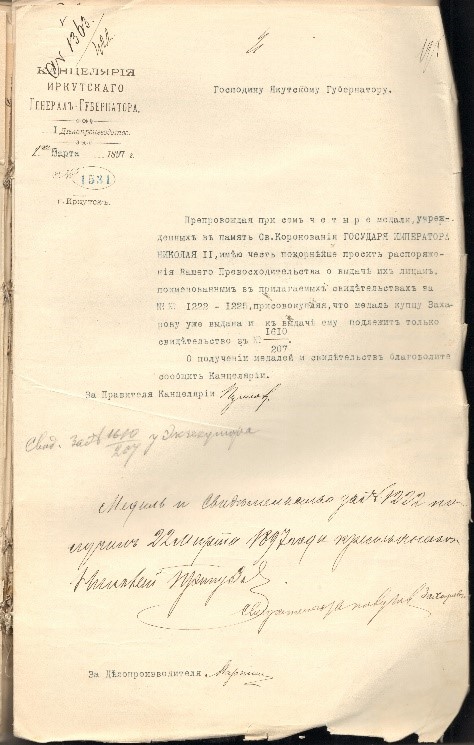 № 1363
КАНЦЕЛЯРІЯ
ИРКУТСКАГО
ГЕНЕРАЛЪ-ГУБЕРНАТОРА.
I Дѣлопроизводство.
Марта 1897 г.
№ 1531
г. Иркутскъ.
Господину Якутскому Губернатору.
Препровождая при семъ четыре медали, учреж-
денныхъ въ память Св. Коронованія ГОСУДАРЯ ИМПЕРАТОРА
НИКОЛАЯ II, имѣю честь покорнѣйше просить распоряже-
нія Вашего Превосходительства о выдачѣ ихъ лицамъ,
поименованнымъ въ прилагаемыхъ свидѣтельствахъ за
№№ 1222 - 1225, присовокупляя, что медаль купцу Заха-
рову уже выдана и къ выдачѣ ему подлежитъ только
свидѣтельство за № 1610/207.
О полученіи медалей и свидѣтельствъ благоволите
сообщить Канцеляріи.
За Правителя Канцеляріи
Свид. за № 1610/207 у Экзекутора
Медаль и Свидетельство за № 1222 по-
лучилъ 22 Марта 1897 года
За Дѣлопроизводителя